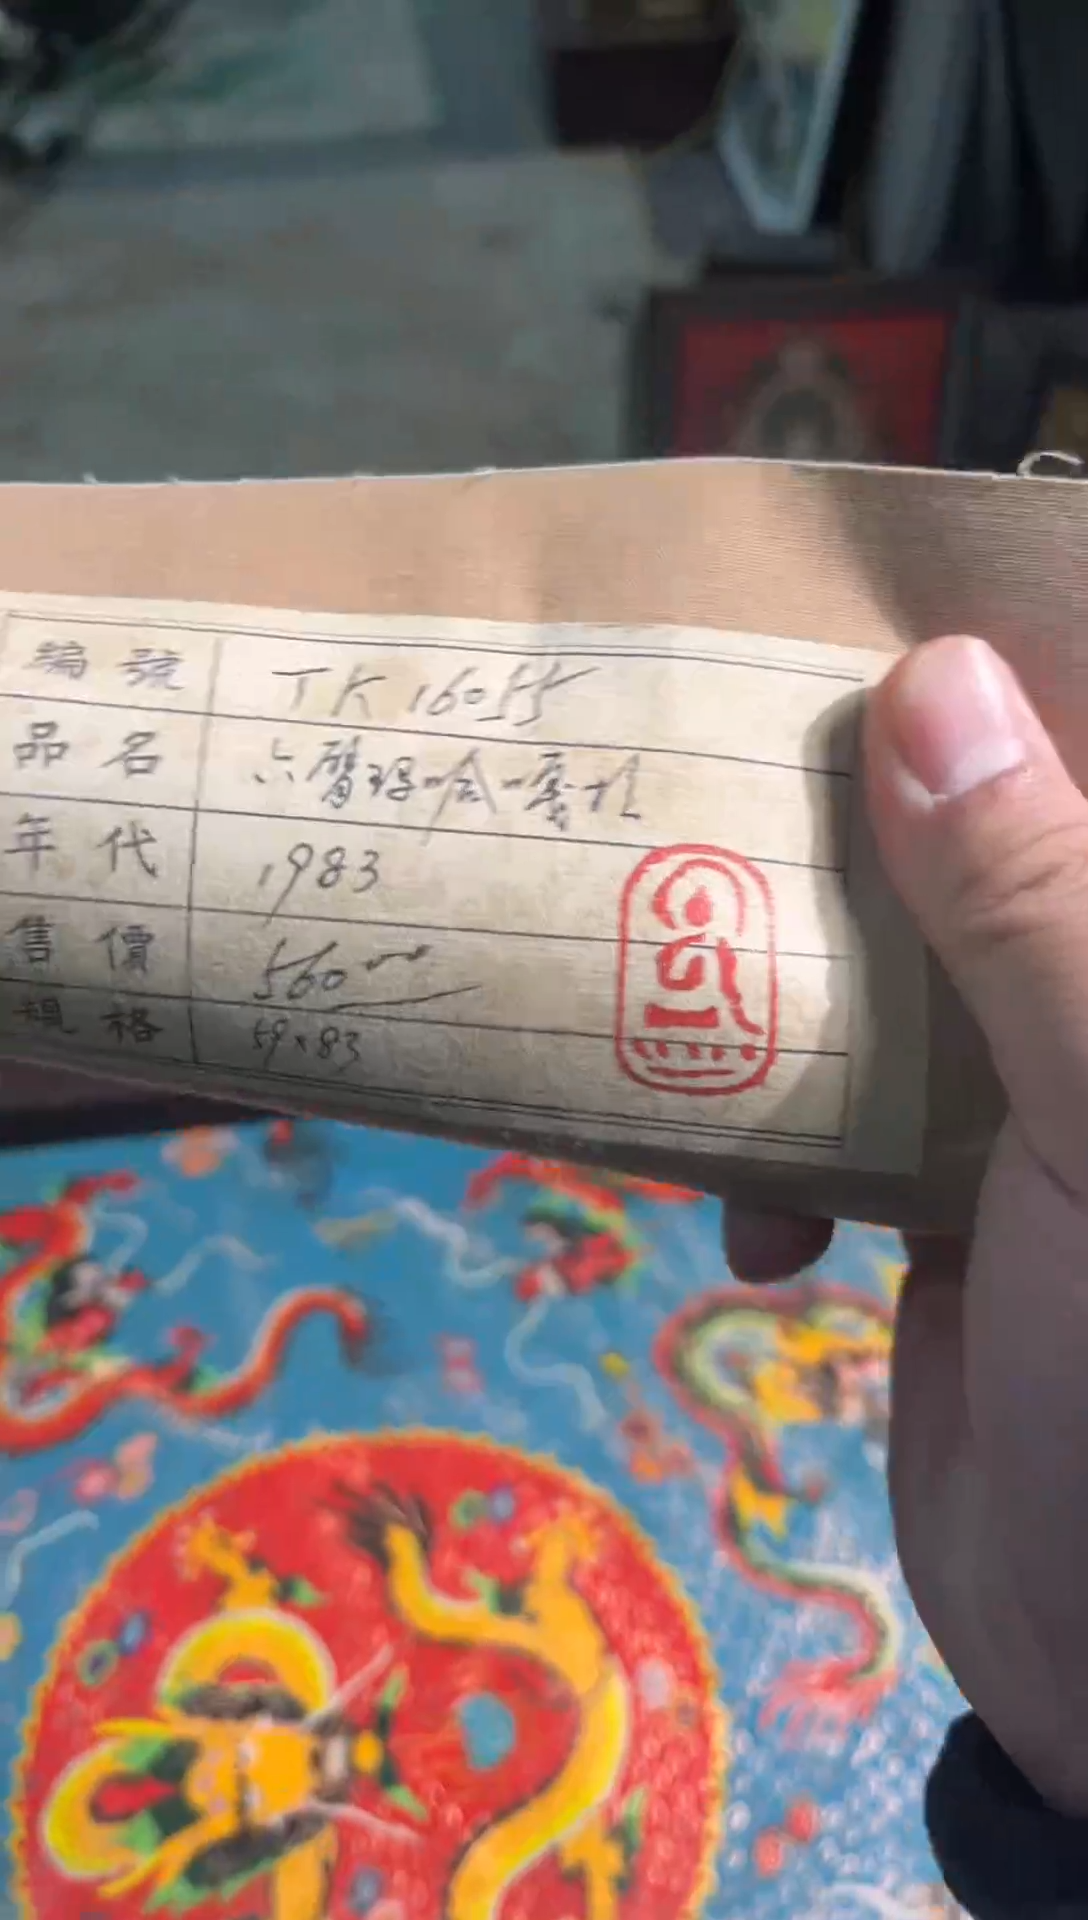 編號 TK 16055
品名 六臂瑪哈嘎拉
年代 1983
售價 560
規格 59x83